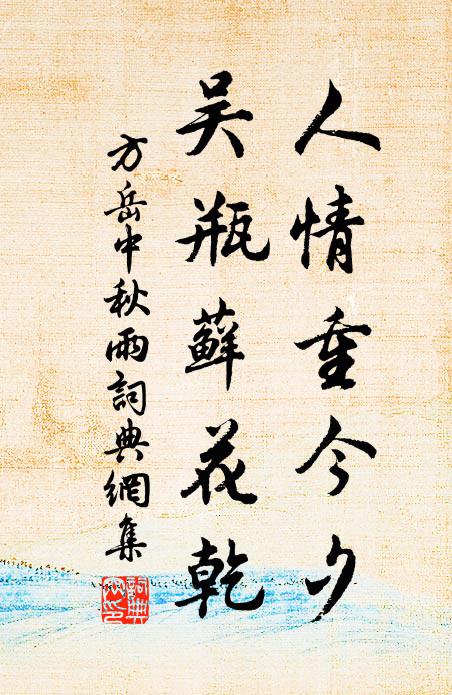 人情重今夕
吴瓶蘚花乾
方岳中秋雨詞典網集